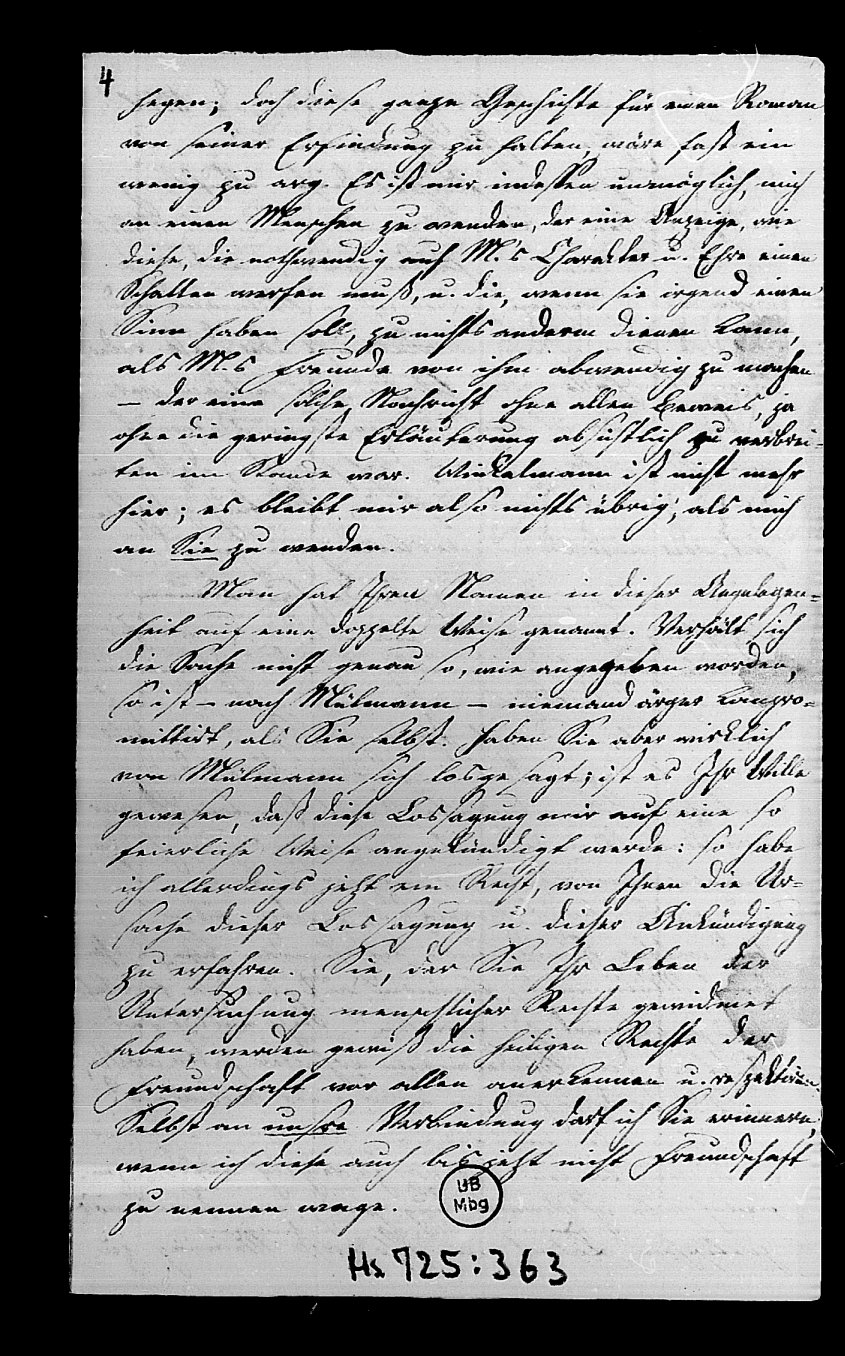 4
hegen; doch diese ganze Geschichte für einen Roman
von seiner Erfindung zu halten, wäre fast ein
wenig zu arg. Es ist mir indessen unmöglich, mich
an einen Menschen zu wenden, der eine Anzeige, wie
diese, die nothwendig auf M.'s Charakter u. Ehre einen
Schatten werfen muß, u. die, wenn sie irgend einen
Sinn haben soll, zu nichts anderm dienen kann,
als M.s Freunde von ihm abwendig zu machen
– der eine solche Nachricht ohne allen Beweis, ja
ohne die geringste Erläuterung absichtlich zu verbrei-
ten im Stande war. Winkelmann ist nicht mehr
hier; es bleibt mir also nichts übrig, als mich
an Sie zu wenden.
Man hat Ihren Namen in dieser Angelegen=
heit auf eine doppelte Weise genannt. Verhält sich
die Sache nicht genau so, wie angegeben worden,
so ist – nach Mülmann – niemand ärger kompro=
mittirt, als Sie selbst. Haben Sie aber wirklich
von Mülmann sich losgesagt; ist es Ihr Wille
gewesen, daß diese Lossagung mir auf eine so
feierliche Weise angekündigt werde: so habe
ich allerdings jetzt ein Recht, von Ihnen die Ur=
sache dieser Lossagung u. dieser Ankündigung
zu erfahren. Sie, der Sie Ihr Leben der
Untersuchung menschlicher Rechte gewidmet
haben, werden gewiß die heiligen Rechte der
Freundschaft vor allen anerkennen u. respektiren.
Selbst an unsre Verbindung darf ich Sie erinnern,
wenn ich diese auch bis jetzt nicht Freundschaft
zu nennen wage.
UB
Mbg
Hs 725:363